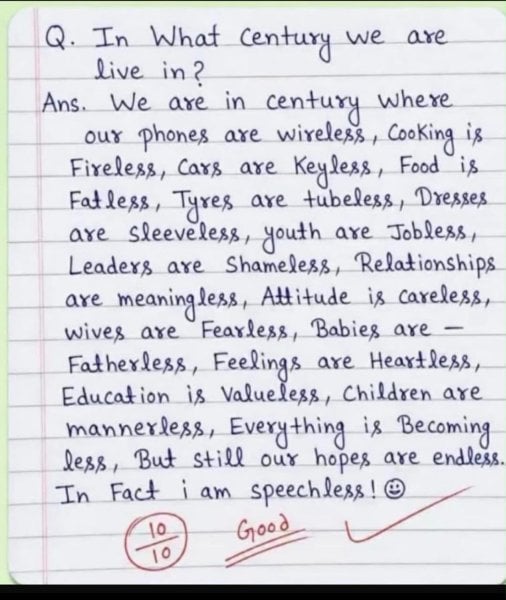 Q. In What century we are
live in?
Ans. We are in century where
our phones are wireless, Cooking is
Fireless, Cars are Keyless, Food is
Fatless, Tyres are tubeless, Dresses
are sleeveless, youth are Jobless,
Leaders are Shameless, Relationships
are meaningless, Attitude is careless,
wives are Fearless, Babies are –
Fatherless, Feelings are Heartless,
Education is Valueless, Children are
mannerless, Everything is Becoming
less, But still our hopes are endless.
In Fact i am speechless! ☺
10/10 Good